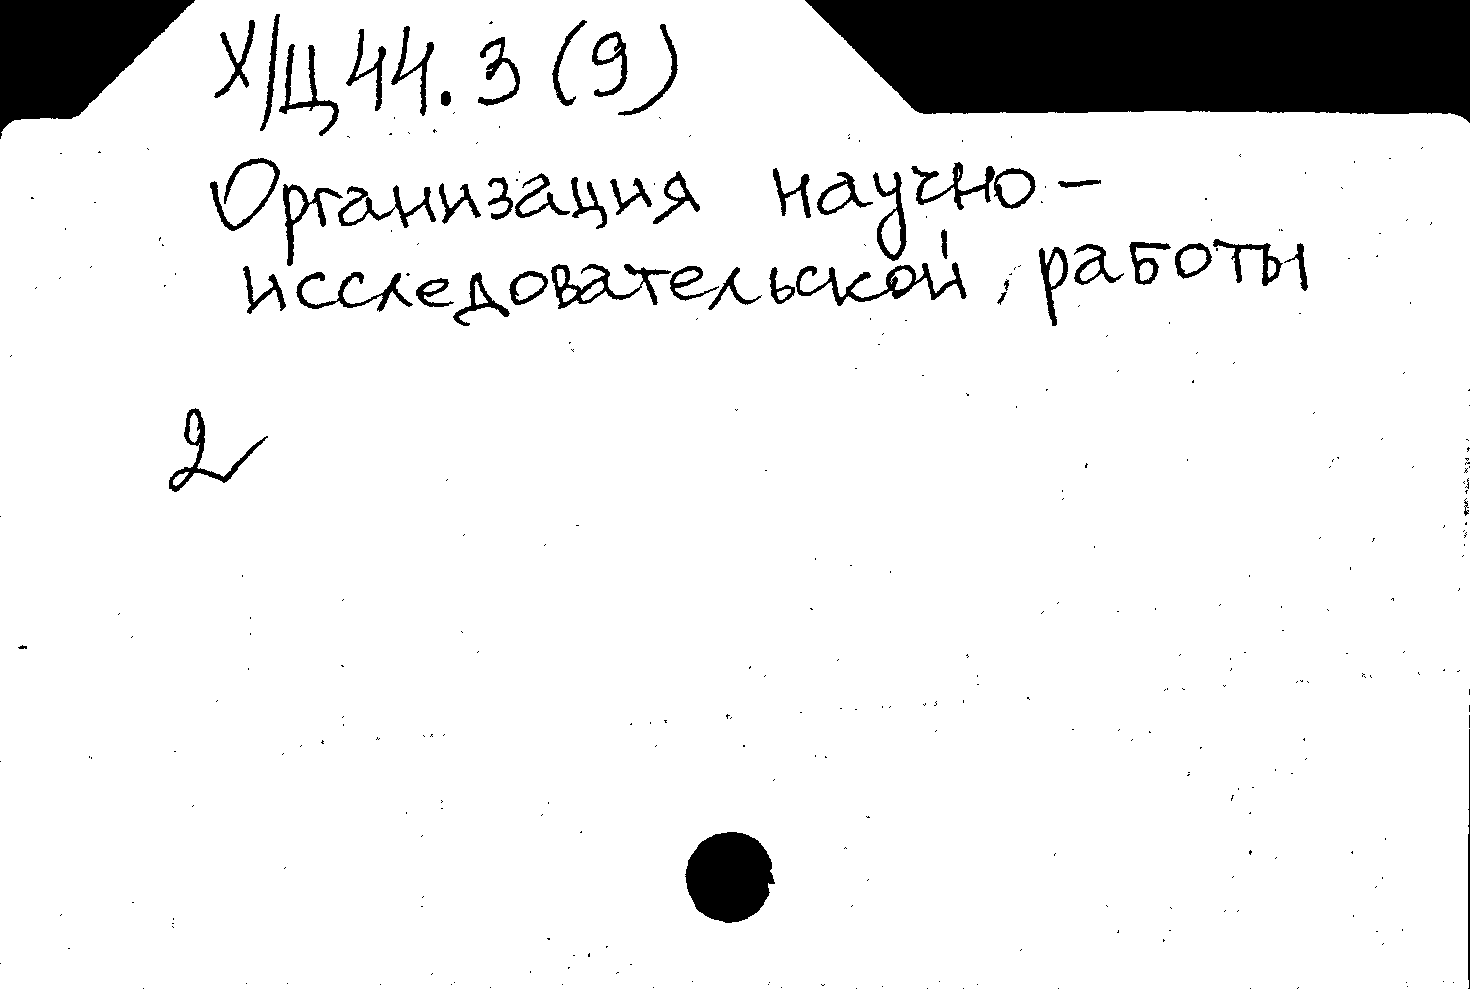 Х/Ц44.3(9)
Организация научно-
исследовательской работы
2